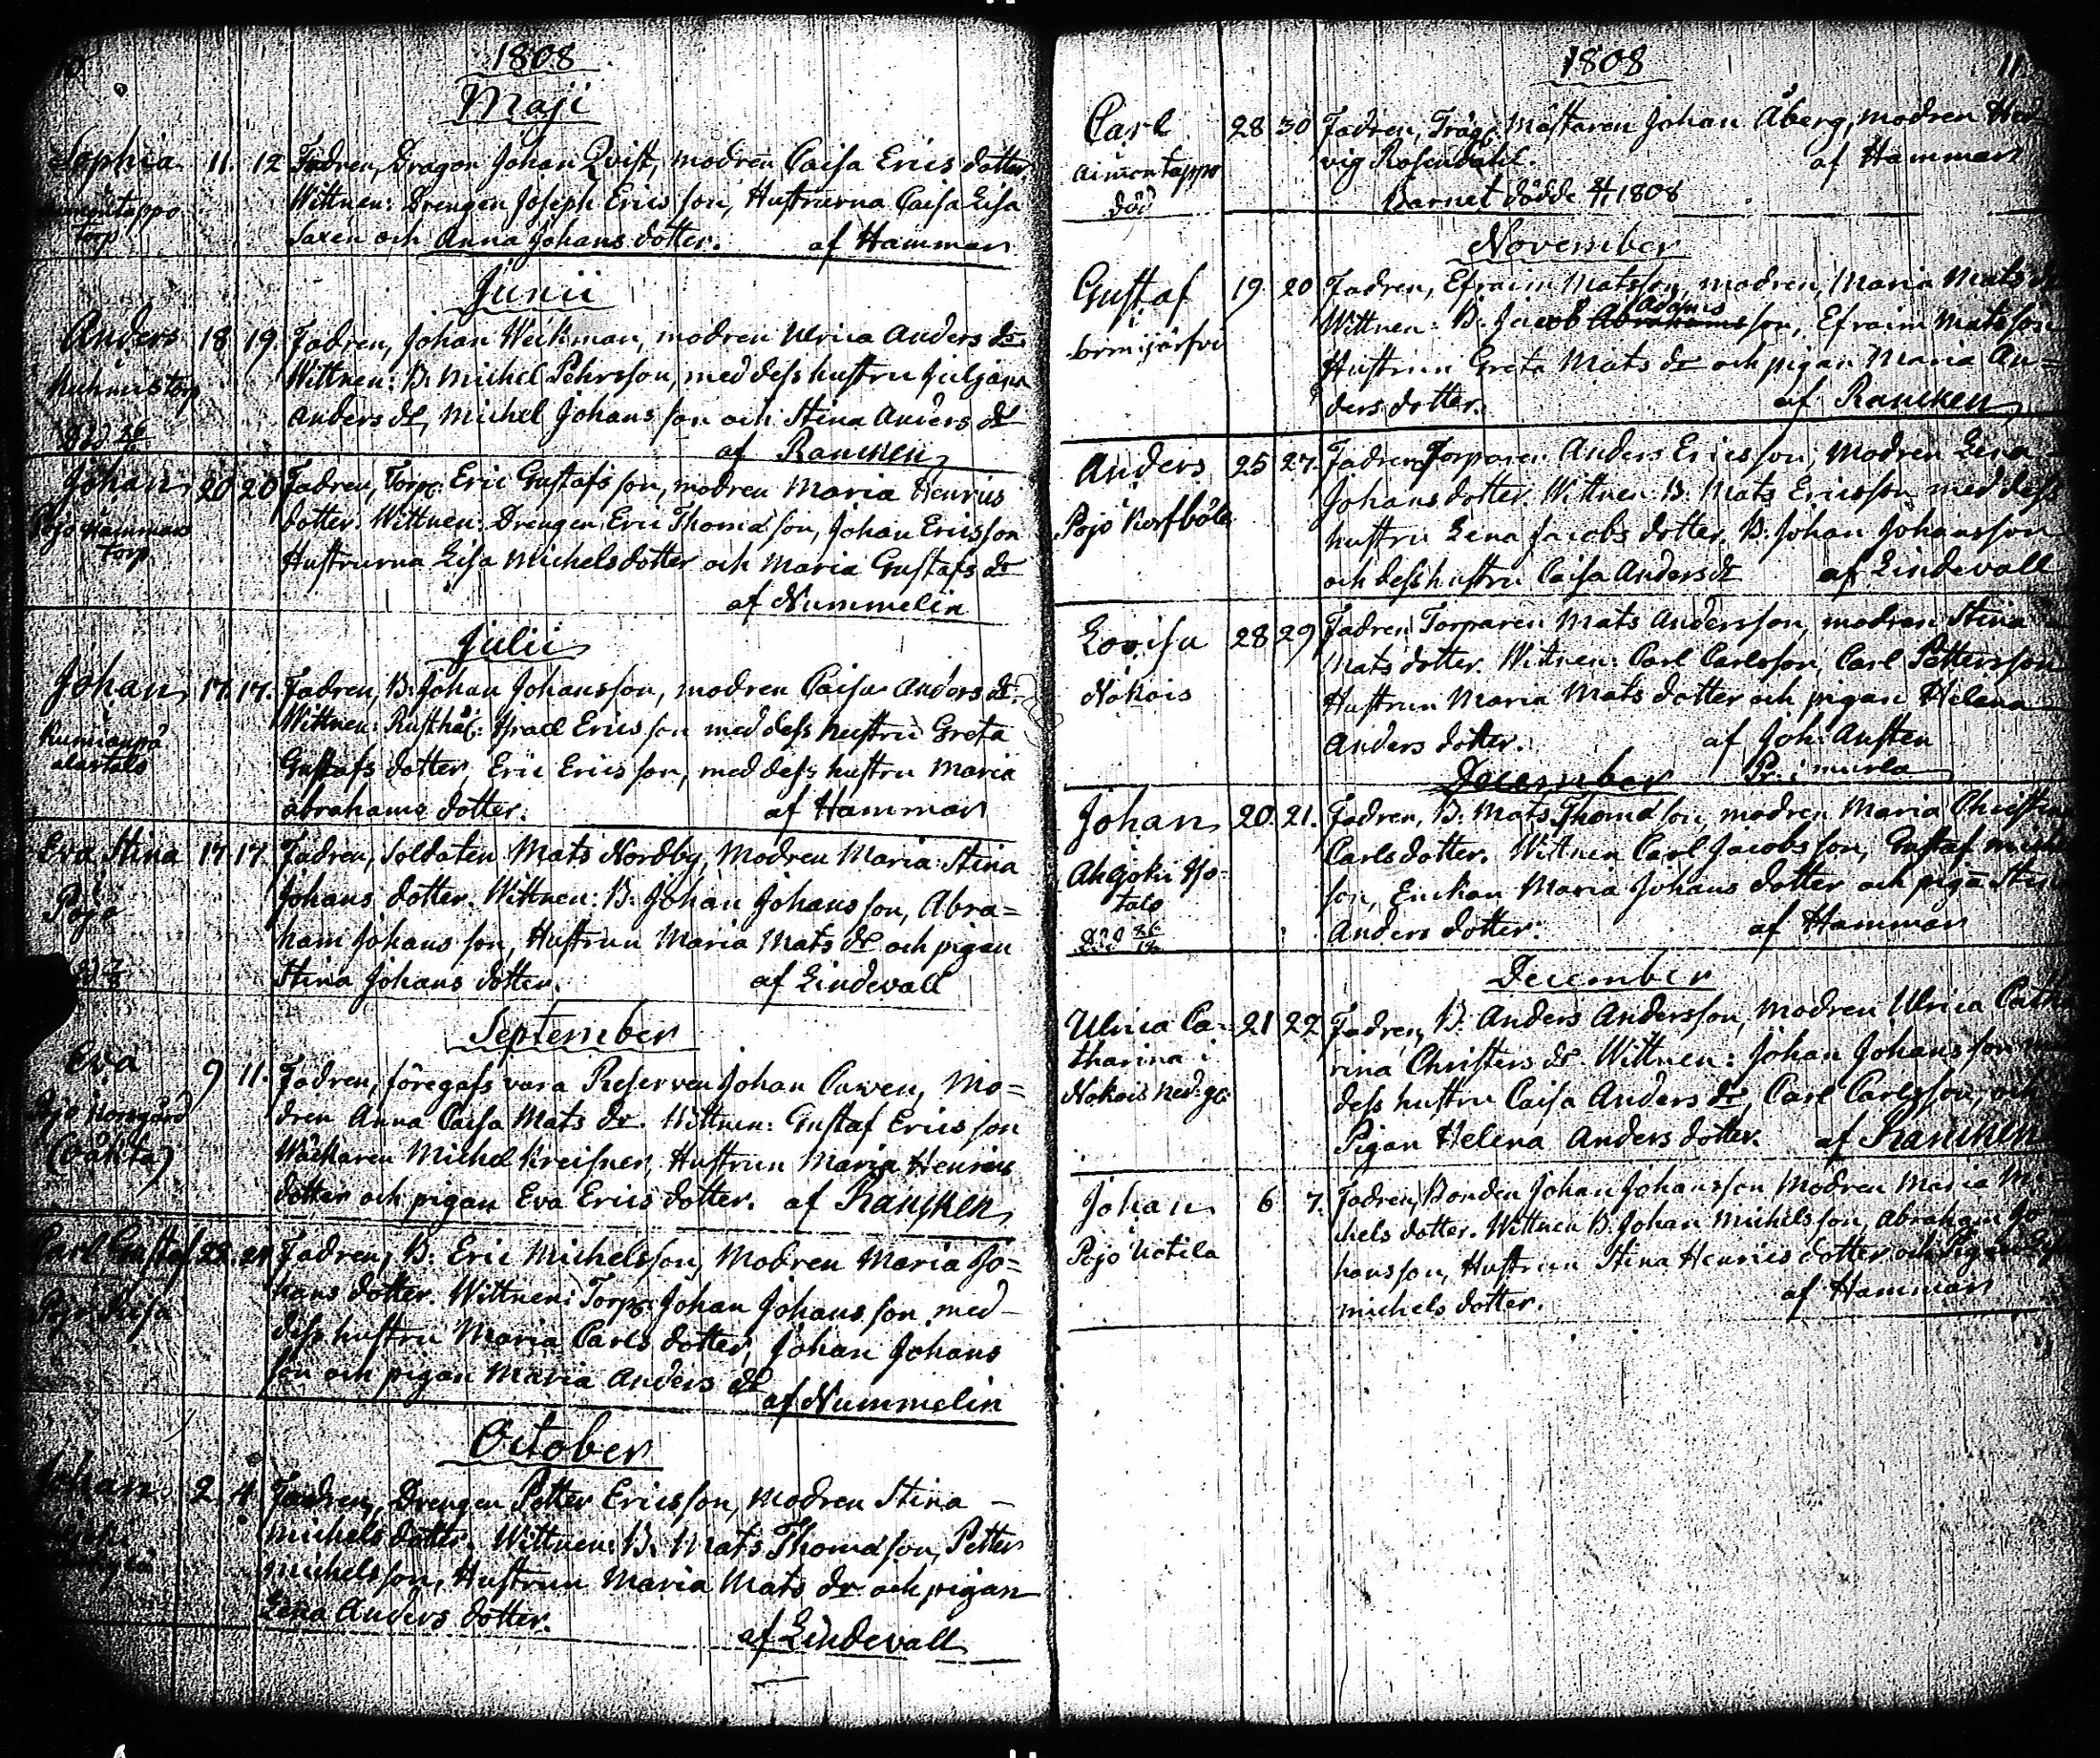 1808
Maji
Sophia 11. 12 Fadren, Dragon Johan Qvist, modren Caisa Erics dotter,
Wittnen: Drengen Joseph Ericsson, Hustrurna Caisa Lisa
torp
Saxen och Anna Johans dotter. af Hammar
Junii
Anders 18 19. Fadren, Johan Weckman, modren Ulrica Anders dr
Wittnen: B. Michel Pehrsson, med dess hustru Juliana
Anders dr, Michel Johansson och Stina Anders dr
af Rancken
Johan 20 20 Fadren, Torp: Eric Gustafsson, modren Maria Henrics
dotter. Wittnen: Drengen Eric Thomasson, Johan Ericsson
torp
Hustrurna Lisa Michelsdotter och Maria Gustafs dr
af Nummelin
Julii
Johan 17. 17. Fadren, B: Johan Johansson, modren Caisa Anders dr.
Wittnen: Rusthål: Israel Ericsson med dess hustru Greta
Gustafs dotter, Eric Ericsson, med dess hustru Maria
Abrahams dotter. af Hammar
Eva Stina 17 17. Fadren, Soldaten Mats Nordby, Modren Maria Stina
i
Johans dotter. Wittnen: B. Johan Johansson, Abra=
Pojo
ham Johansson, Hustrun Maria Mats dr och pigan
Stina Johans dotter. af Lindevall
September
Eva 9 11. Fadren, föregafs vara Reserven Johan Cawen, Mo=
dren Anna Caisa Mats dr. Wittnen: Gustaf Ericsson
Michel Kreisner, Hustrun Maria Henrics
dotter och pigan Eva Erics dotter. af Rancken
Carl Gustaf 23. 24 Fadren, B: Eric Michelsson, Modren Maria Jo=
hans dotter. Wittnen: Torp: Johan Johansson med
dess hustru Maria Carls dotter, Johan Johans
son och pigan Maria Anders dr
af Nummelin
October
Johan 2. 4 Fadren, Drengen Petter Ericsson, Modren Stina
Michels dotter. Wittnen: B. Mats Thomasson, Petter
Michelsson, Hustrun Maria Mats dr och pigan
Lena Anders dotter.
af Lindevall
1808
11
Carl 28 30 Fadren, Träg: Mästaren Johan Åberg, modren Hed
vig Rosendahl. af Hammar
död
Barnet dödde 1808
November
Gustaf 19. 20 Fadren, Efraim Matsson, modren, Maria Mats dr
i
Adams
Wittnen: B. Jacob Abrahamsson, Efraim Matsson
Hustrun Greta Mats dr och pigan Maria An=
ders dotter. af Rancken
Anders 25 27. Fadren Torparen Anders Ericsson, Modren Lena
i
Johansdotter. Wittnen B. Mats Ericsson med dess
Pojo Korfböle
hustru Lena Jacobs dotter. B. Johan Johansson
och dess hustru Caisa Anders dr af Lindevall
Lovisa 28 29 Fadren Torparen Mats Andersson, modren Stina
i
Mats dotter. Wittnen: Carl Carlsson, Carl Pettersson
Nokois
Hustrun Maria Mats dotter och pigan Helena
Anders dotter. af Joh: Austen
December
Johan 20. 21. Fadren, B. Mats Thomasson, modren Maria Christina
i
Carlsdotter. Wittnen Carl Jacobsson, Gustaf Michel
son, Enckan Maria Johans dotter och pigan Stina
Anders dotter. af Hammar
December
Ulrica Ca= 21 22 Fadren, B. Anders Andersson, Modren Ulrica Catha
tharina i
rina Christers dr. Wittnen: Johan Johansson
Nokois ned: g:
dess hustru Caisa Anders dr, Carl Carlsson, och
Pigan Helena Anders dotter. af Rancken
Johan 6 7. Fadren, Bonden Johan Johansson Modren Maria Mi=
i
chels dotter. Wittnen B. Johan Michelsson, Abraham Jo
Pojo
hansson, Hustrun Stina Henrics dotter och Pigan
Michels dotter. af Hammar